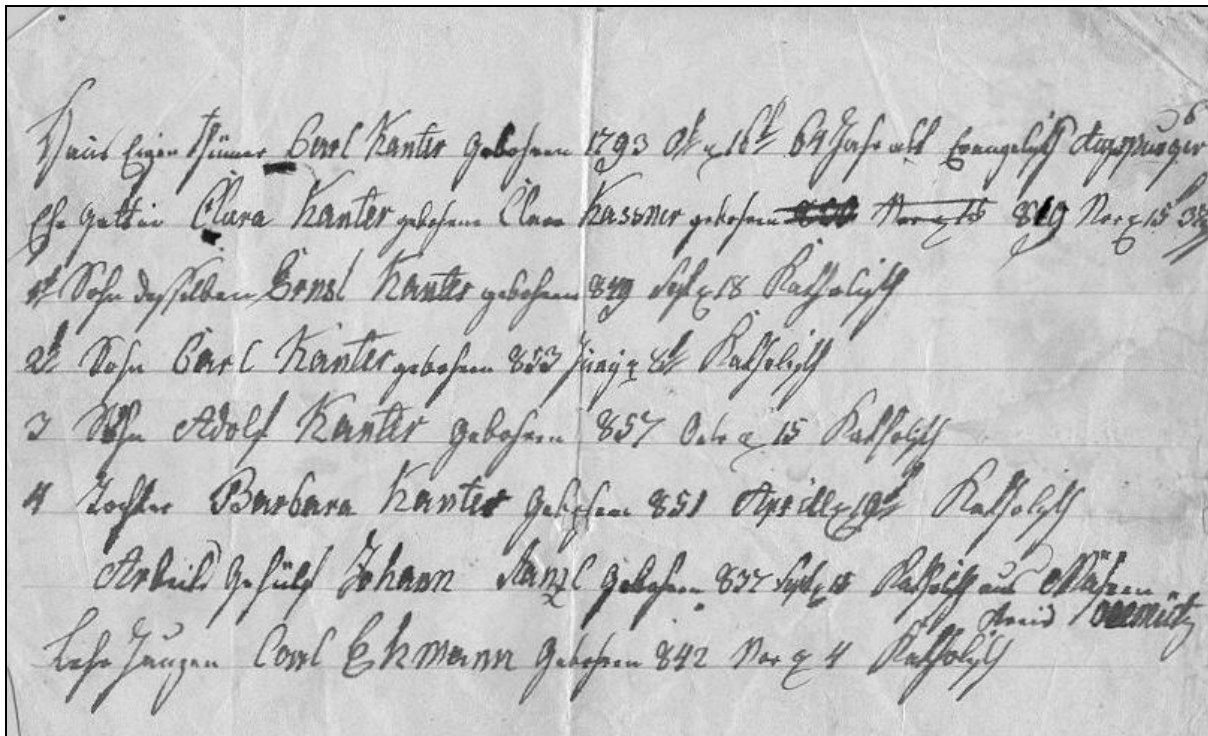 Haus Eigenthümer Carl Kanter gebohren 1793 16t 64 Jahr alt Evangelisch Augspurger
Ehe gattin Clara Kanter gebohrne Clara Kassner gebohren Nov 15 819 Nov 15t 38
1t Sohn desselben Ernst Kanter gebohren 849 Sept 18 Katholisch
2t Sohn Carl Kanter gebohren 853 Juny 8t Katholisch
3 Sohn Adolf Kanter gebohren 857 15 Katholisch
4 Tochter Barbara Kanter Gebohren 851 Aprill 19t Katholisch
Arbeits Gehülf Johann gebohren 837 Sept 15 Katholisch aus Mähren
Kreis Ollmütz
Lehr Jungen Carl Ehmann Gebohren 842 Nov 4 Katholisch